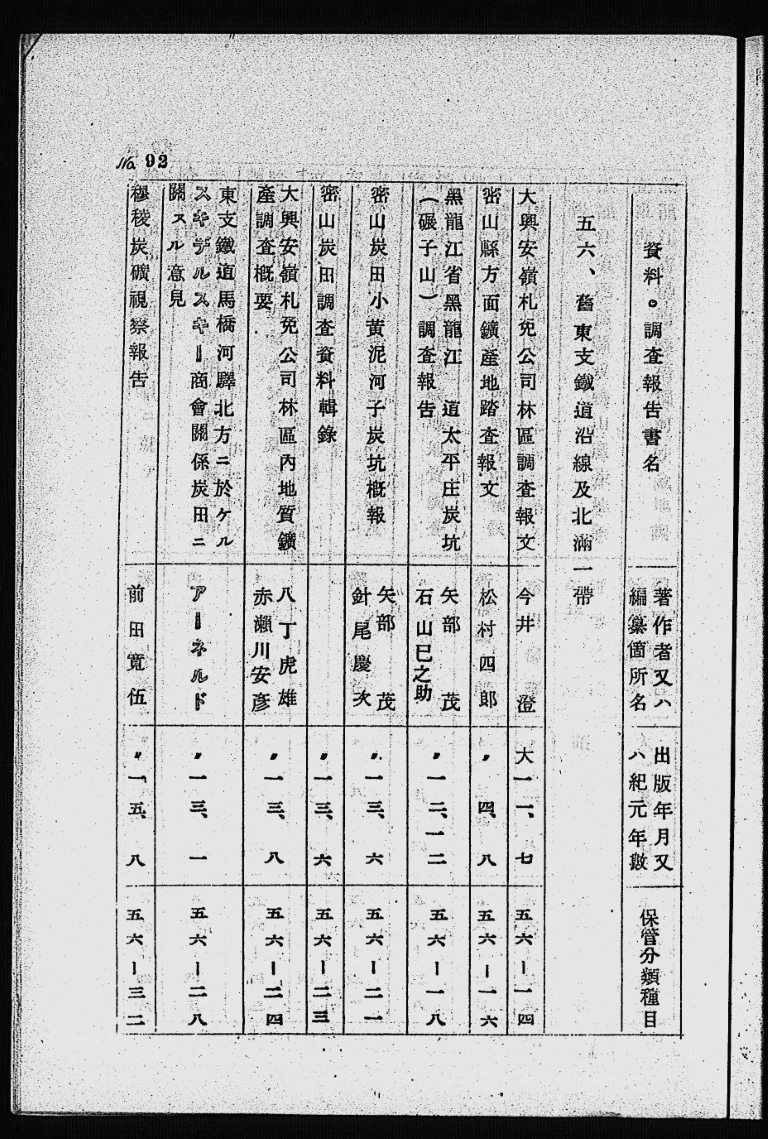 No 92
資料。調査報告書名
著作者又ハ
編纂箇所名
出版年月又
ハ紀元年數
保管分類種目
五六、舊東支鐵道沿線及北滿一帶
大興安嶺札免公司林區調査報文
今井 澄
大一一、七
五六ー一四
密山縣方面鑛產地踏査報文
松村四郎
〃 四、八
五六ー一六
黑龍江省黑龍江 道太平庄炭坑
(碾子山)調査報告
矢部 茂
石山巳之助
〃一二、一二
五六ー一八
密山炭田小黃泥河子炭坑概報
矢部 茂
針尾慶次
〃一三、六
五六ー二一
密山炭田調査資料輯錄
〃一三、六
五六ー二三
大興安嶺札免公司林區內地質鑛
產調査槪要
八丁虎雄
赤瀨川安彥
〃一三、八
五六ー二四
東支鐵道馬橋河驛北方ニ於ケル
スキデルスキー商會關係炭田ニ
關スル意見
アーネルド
〃一三、一
五六ー二八
穆稜炭礦視察報告
前田寬伍
〃一五、八
五六ー三二